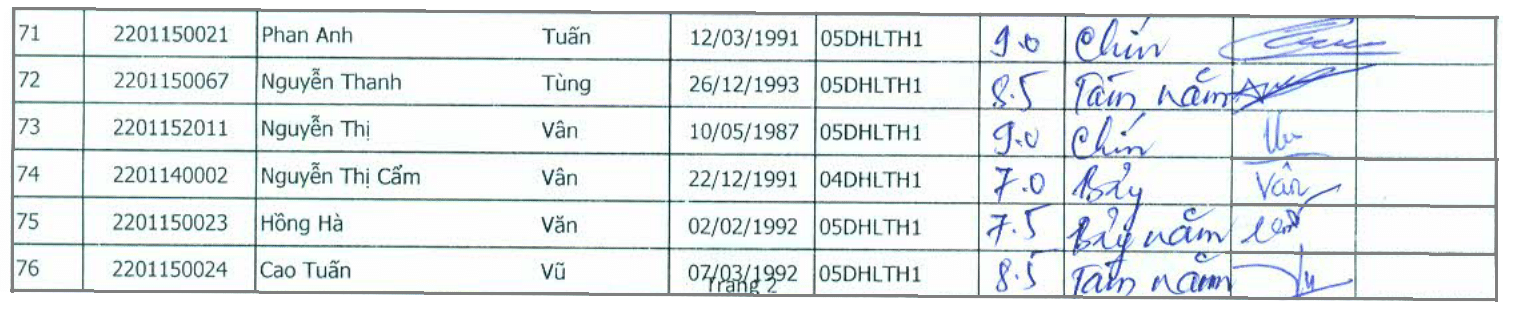 71 2201150021 Phan Anh Tuấn 12/03/1991 05DHLTH1 9.0 Chín
72 2201150067 Nguyễn Thanh Tùng 26/12/1993 05DHLTH1 8.5 Tám năm
73 2201152011 Nguyễn Thị Vân 10/05/1987 05DHLTH1 9.0 Chín
74 2201140002 Nguyễn Thị Cẩm Vân 22/12/1991 04DHLTH1 7.0 Bảy Vân
75 2201150023 Hồng Hà Văn 02/02/1992 05DHLTH1 7.5 Bảy năm
76 2201150024 Cao Tuấn Vũ 07/03/1992 05DHLTH1 8.5 Tám năm
Trang 2